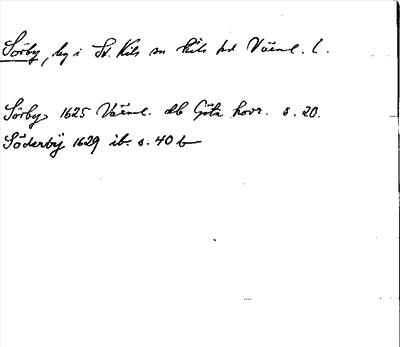 Sörby, by i St. Kils sn Kils hd Värml. l.
Sörby 1625 Värml. db Göta hovr. s. 20.
Söderbÿ 1629 ib. s. 40 b